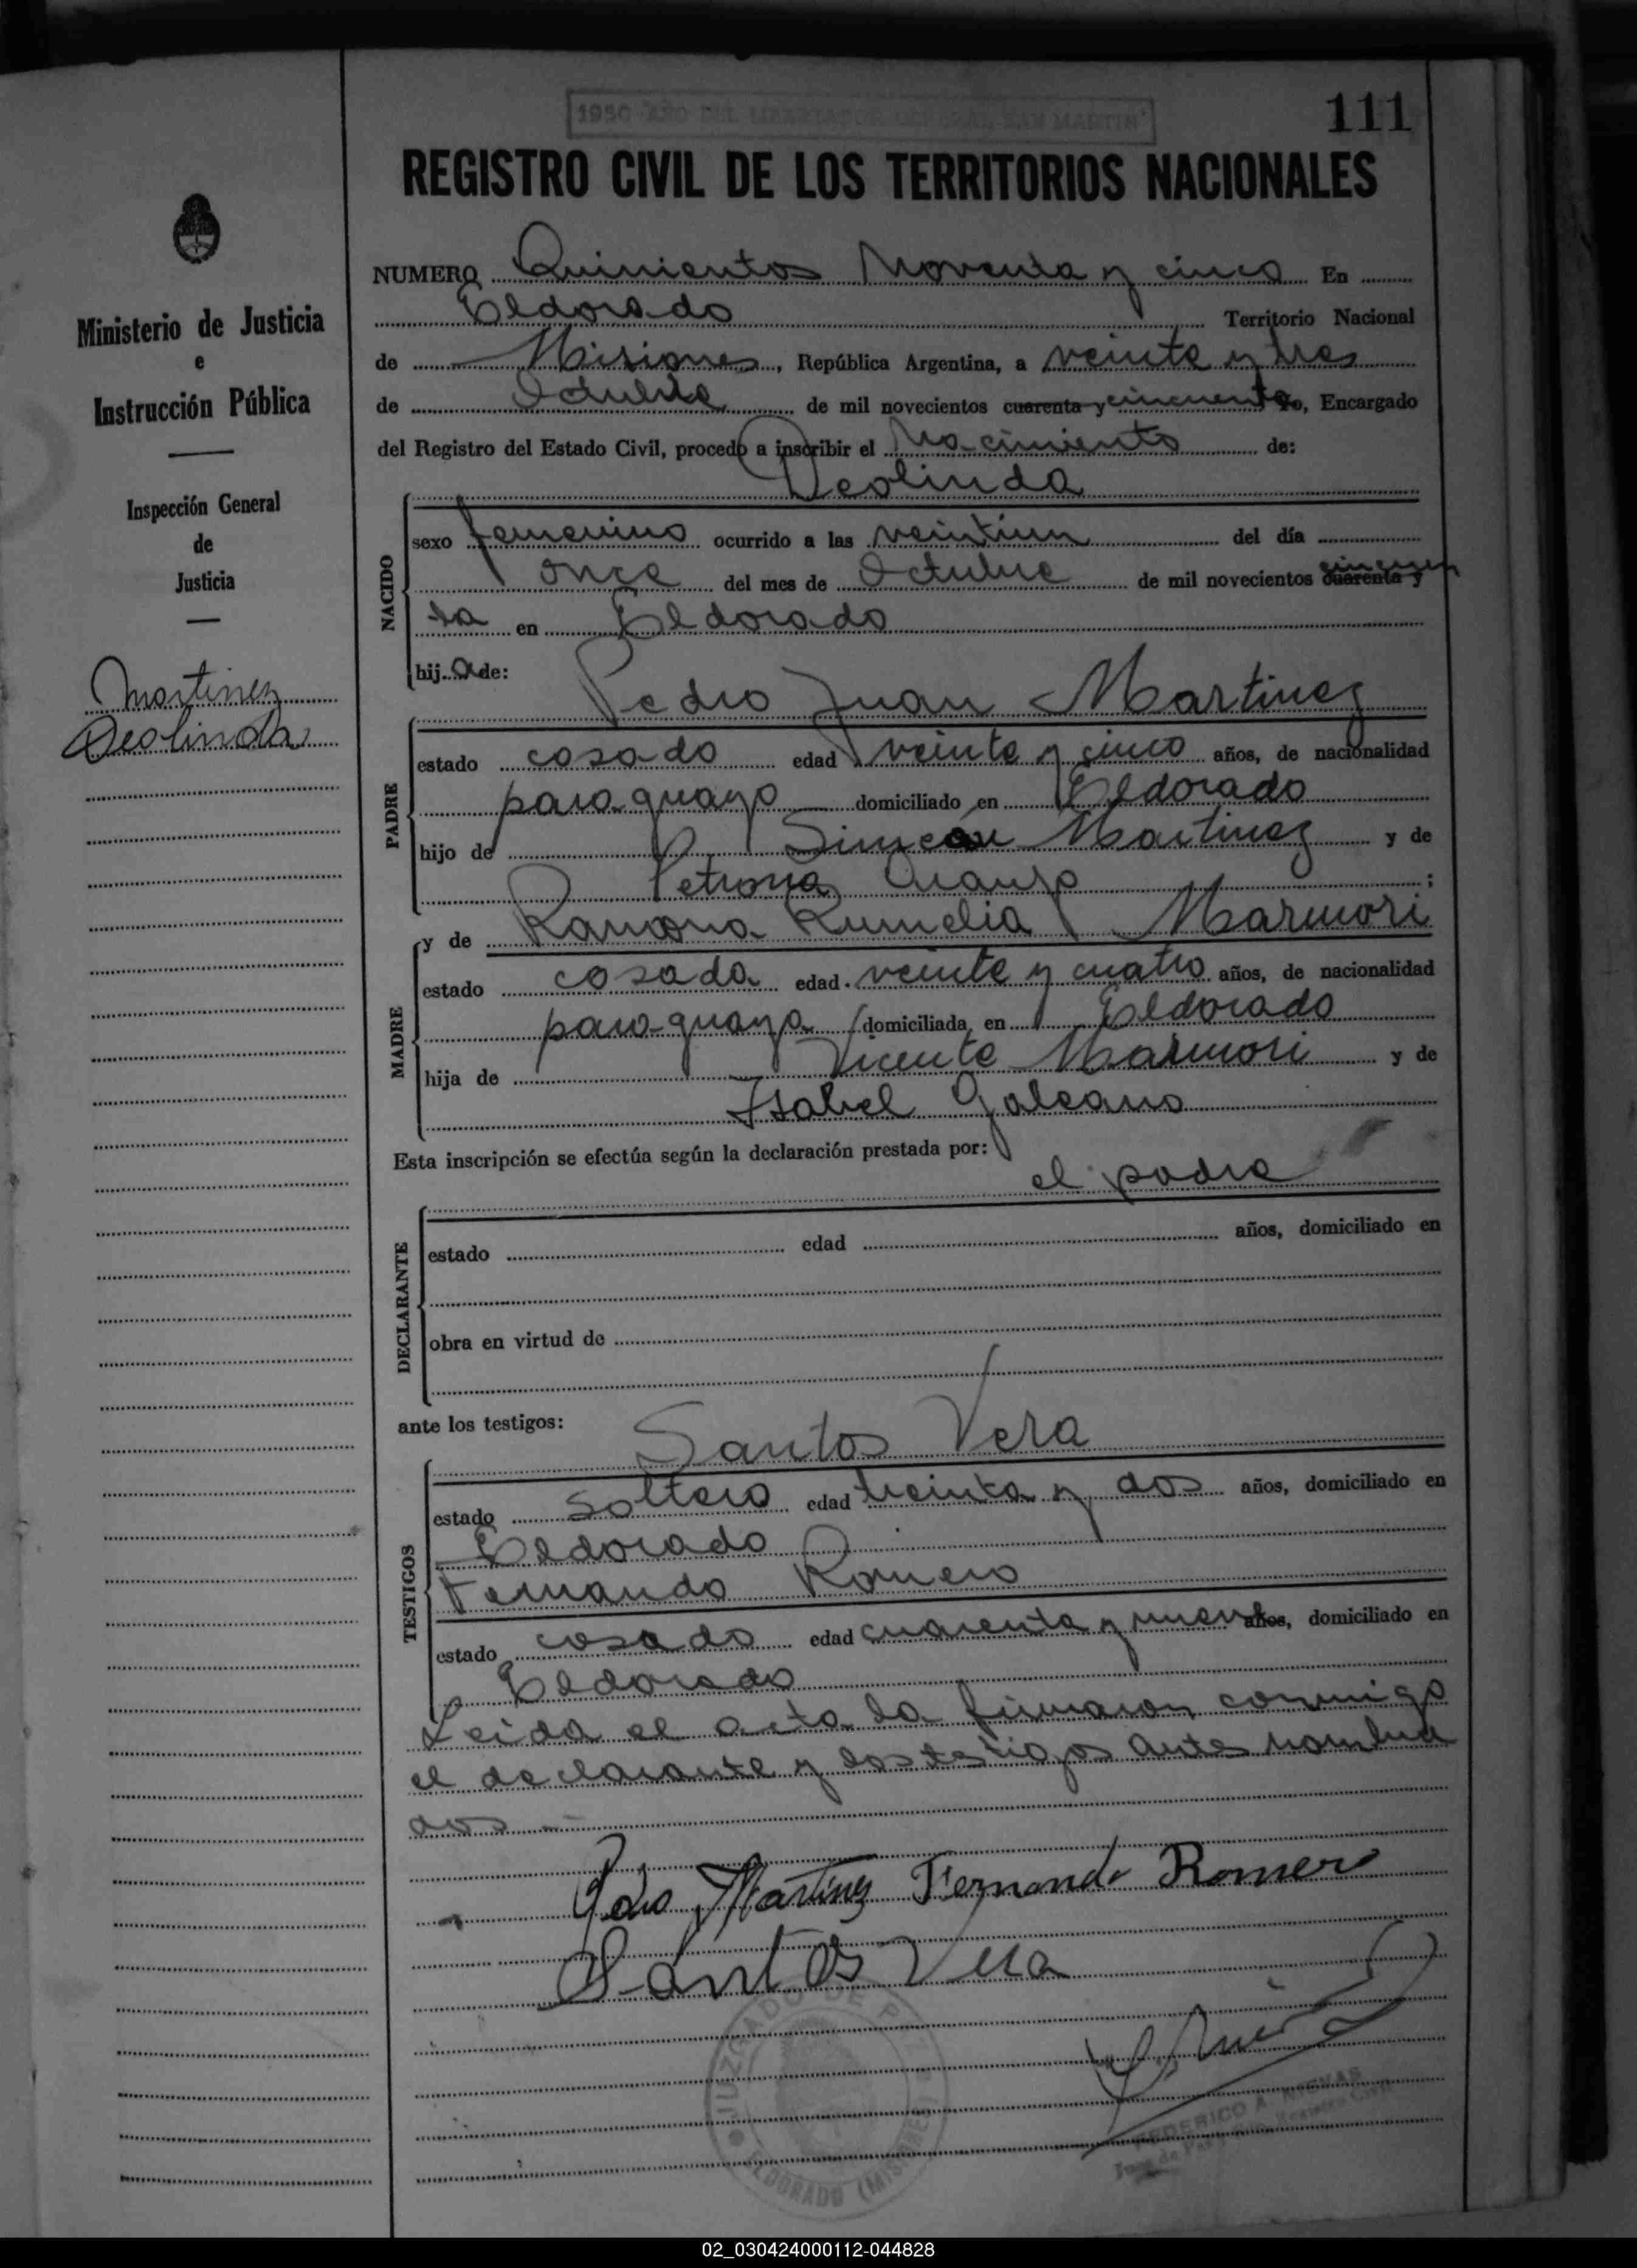 1950 "AÑO DEL LIBERTADOR GENERAL SAN MARTIN"
111
REGISTRO CIVIL DE LOS TERRITORIOS NACIONALES
Ministerio de Justicia
e
Instrucción Pública
Inspección General
de
Justicia
Martinez
Deolinda
NUMERO Quinientos Noventa y cinco En
Eldorado Territorio Nacional
de Misiones, República Argentina, a veinte y tres
de Octubre de mil novecientos cuarenta y cincuenta Yo, Encargado
del Registro del Estado Civil, procedo a inscribir el Nacimiento de:
Deolinda
NACIDO
sexo femenino ocurrido a las veintiun del día
once del mes de Octubre de mil novecientos cuarenta y cincuen
ta en Eldorado
hij a de:
Pedro Juan Martinez
PADRE
estado casado edad veinte y cinco años, de nacionalidad
paraguayo domiciliado en Eldorado
hijo de Simeón Martinez y de
Petrona Araujo ;
y de Ramona Rumelia Marmori
MADRE
estado casada edad veinte y cuatro años, de nacionalidad
paraguaya domiciliada en Eldorado
hija de Vicente Marmori y de
Isabel Galeano
Esta inscripción se efectúa según la declaración prestada por:
el padre
DECLARANTE
estado edad años, domiciliado en
obra en virtud de
ante los testigos:
Santos Vera
TESTIGOS
estado soltero edad treinta y dos años, domiciliado en
Eldorado
Fernando Romero
estado casado edad cuarenta y nueve años, domiciliado en
Eldorado
Leida el acta la firmaron conmigo
el declarante y los testigos antes nombra
dos -
Pedro Martinez Fernando Romero
Santos Vera
JUZGADO DE P
ELDORADO (MISIONES)
FEDERICO A. NUEVAS
Juez de Paz Registro Civil
02_030424000112-044828